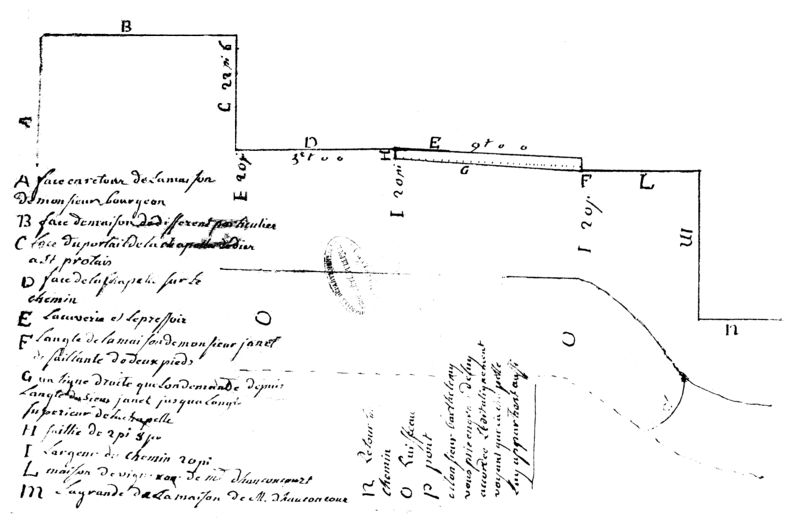 B
A
C 22 pi 6
D
H
E
9 t 0 0
G
E 20 p
I 20 pi
F
I 20 pi
L
M
n
O
O
A face en retour de la maison
de monsieur bourgeon
B face de maison de different particulier
C face du portail de la chapelle
a st protais
D face de la chapelle sur le
chemin
E la cuverie et le pressoir
F l'angle de la maison de monsieur janet
de saillante de deux pieds
G une ligne droite que l'on demande depuis
l'angle du sieur janet jusqua l'angle
superieur de la chapelle
H saillie de 2 pi
I largeur de chemin 20 pi
L maison de vigneron de mr d'hauconcourt
M la grande de la maison de M. d'hauconcour
n retour de
chemin
O ruisseau
P pont
monsieur barthelemy
vous prie en grace de luy
accorder alignement
voyant que la chapelle
luy appartient aussi